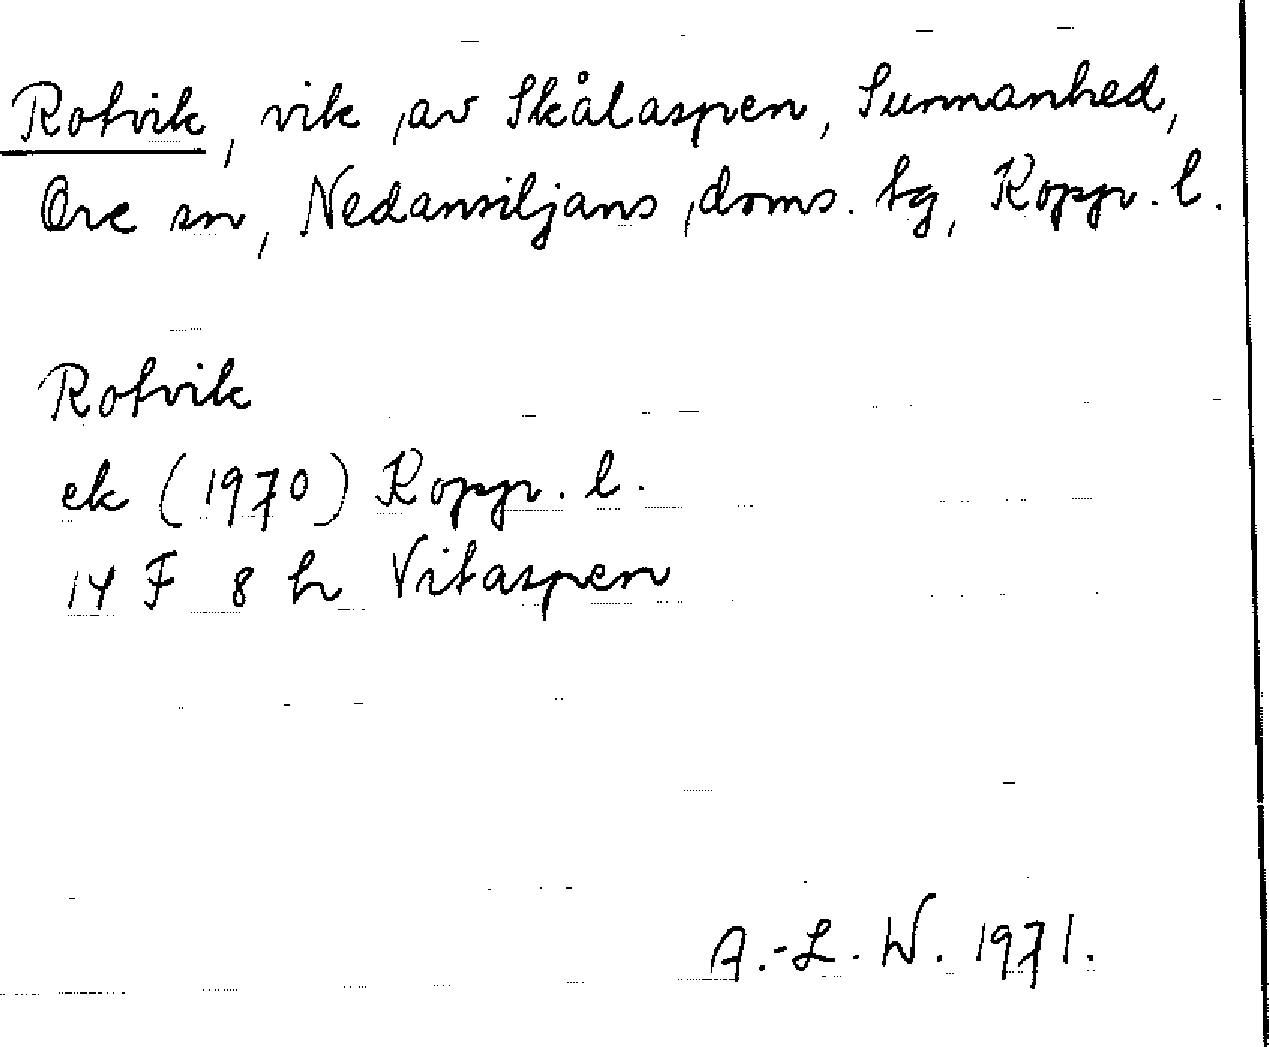 Rotvik, vik av Skålaspen, Sunnanhed,
Ore sn, Nedansiljans doms. tg, Kopp. l.
Rotvik
ek (1970) Kopp. l.
14 F 8 h Vitaspen
A.-L. W. 1971.